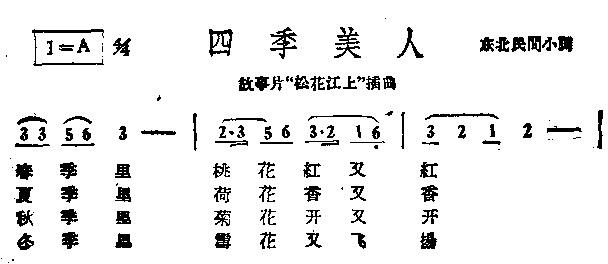 1=A 4/4 四季美人 东北民間小調
故事片“松花江上”插曲
3 3 5 6 3 — | 2·3 5 6 3·2 1 6 | 3 2 1 2 —
春季里 桃花紅又紅
夏季里 荷花香又香
秋季里 菊花开又开
冬季里 雪花又飞揚